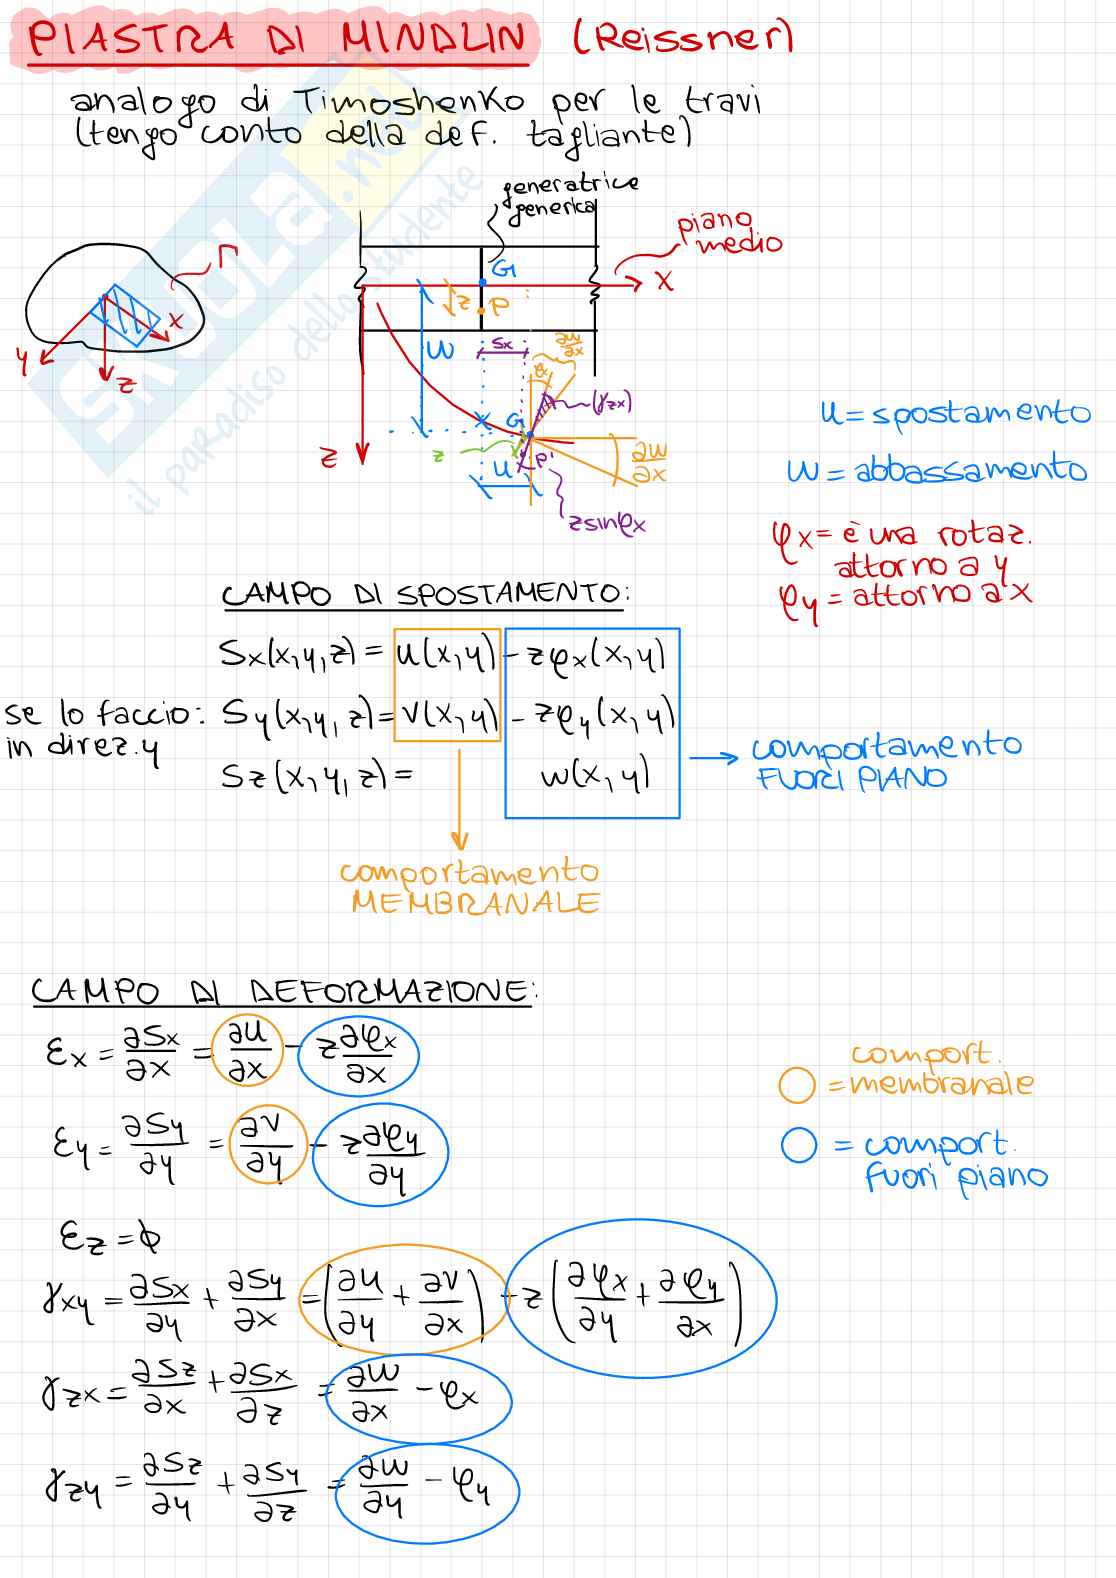 PIASTRA DI MINDLIN (Reissner)
analogo di Timoshenko per le travi
(tengo conto della def. tagliante)
SKUOLA.net
il paradiso dello studente
generatrice
generica
piano
medio
Γ
x
y
z
G
z P
x
w
sx
φx
∂w/∂x
(γzx)
z
G
P'
z
u
∂w/∂x
z sinφx
u = spostamento
w = abbassamento
φx = è una rotaz.
attorno a y
φy = attorno a x
CAMPO DI SPOSTAMENTO:
Sx(x,y,z) = u(x,y) - zφx(x,y)
se lo faccio: Sy(x,y,z) = v(x,y) - zφy(x,y)
in direz. y
Sz(x,y,z) = w(x,y)
comportamento
FUORI PIANO
comportamento
MEMBRANALE
CAMPO DI DEFORMAZIONE:
εx = ∂Sx/∂x = ∂u/∂x - z ∂φx/∂x
εy = ∂Sy/∂y = ∂v/∂y - z ∂φy/∂y
εz = ϕ
γxy = ∂Sx/∂y + ∂Sy/∂x = (∂u/∂y + ∂v/∂x) - z (∂φx/∂y + ∂φy/∂x)
γzx = ∂Sz/∂x + ∂Sx/∂z = ∂w/∂x - φx
γzy = ∂Sz/∂y + ∂Sy/∂z = ∂w/∂y - φy
comport.
= membranale
= comport.
fuori piano